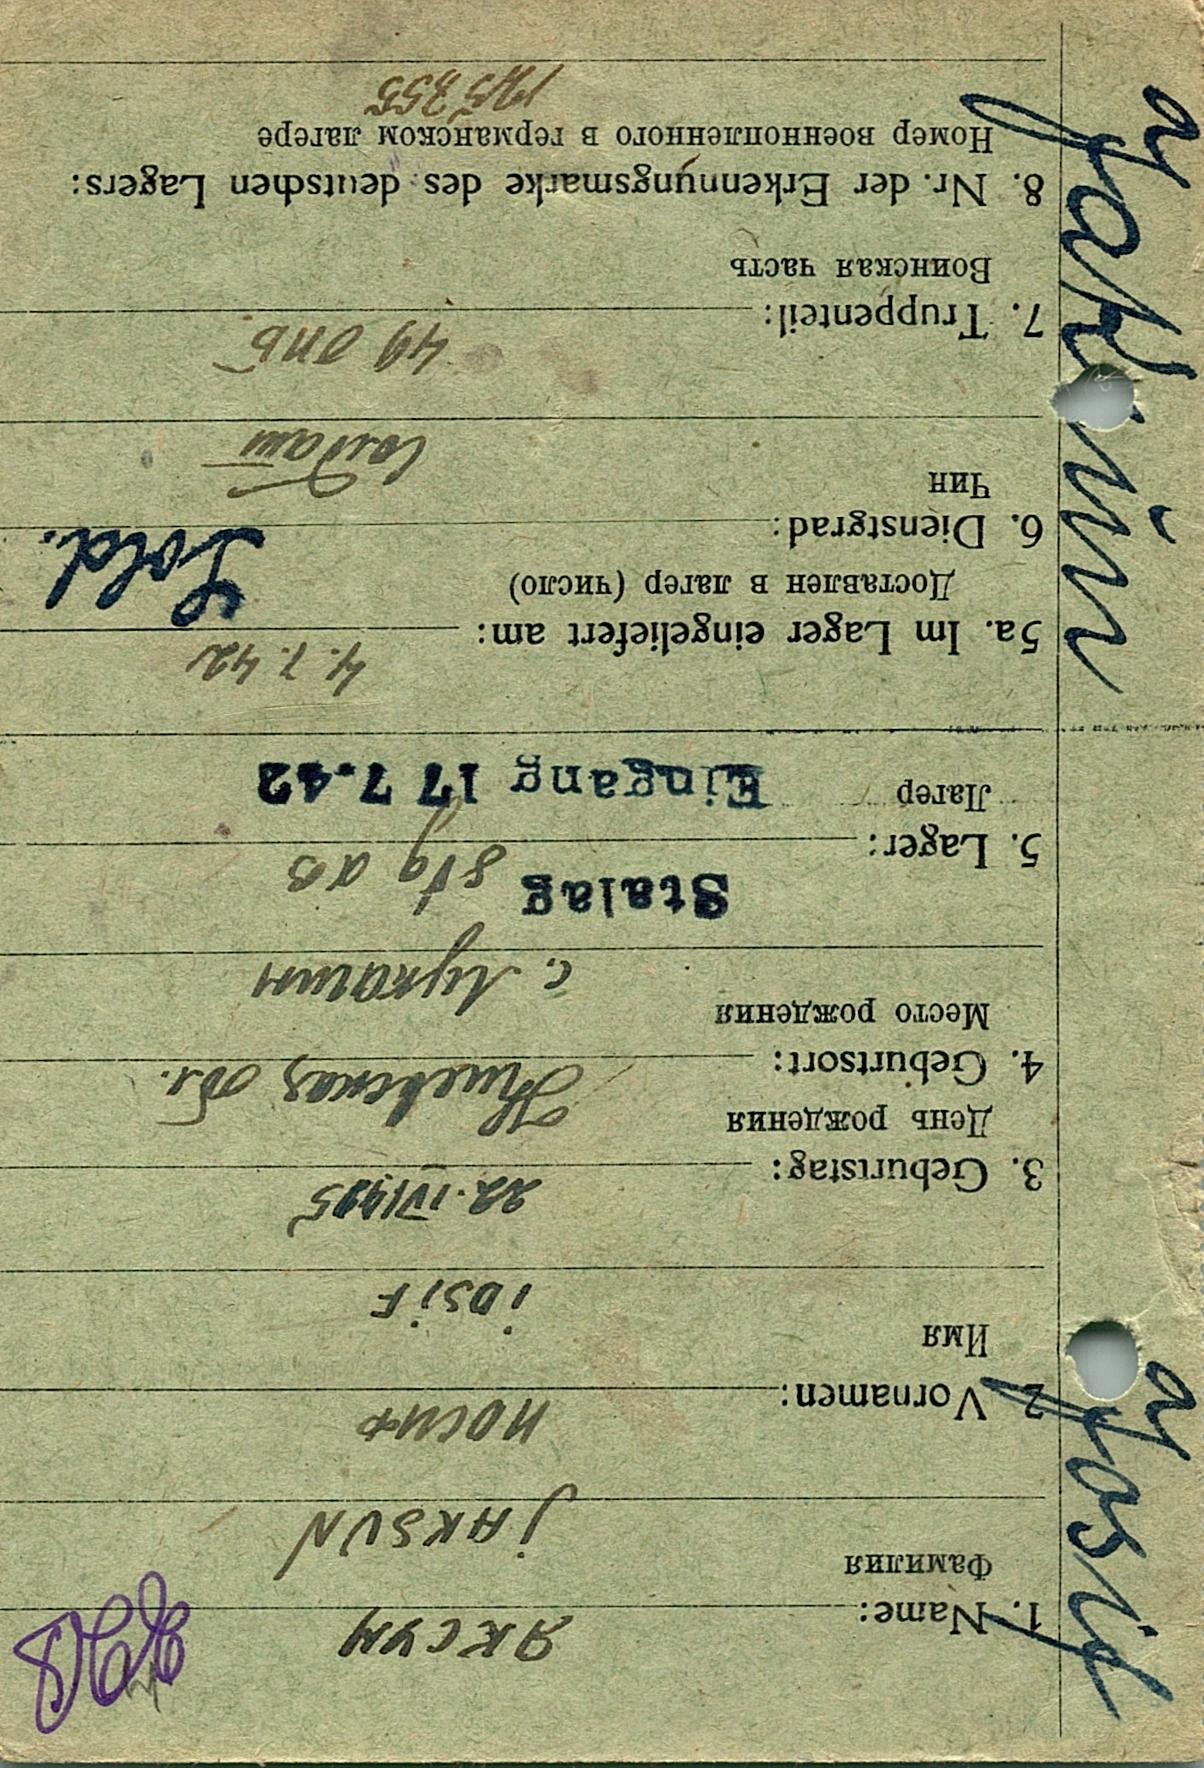 1. Name: Яксун
Фамилия
jAKSUN
2. Vornamen: Иосиф
Имя
iosif
3. Geburtstag:
День рождения
4. Geburtsort: Киевская обл.
Место рождения
с. Лукаши
Stalag
5. Lager:
Лагер Eingang 17 7.42
5a. Im Lager eingeliefert am: 4.7.42
Доставлен в лагер (число)
Sold.
6. Dienstgrad:
Чин
Солдат
7. Truppenteil: 49 опб
Воинская часть
8. Nr. der Erkennungsmarke des deutschen Lagers:
Номер военнопленного в германском лагере
Josif